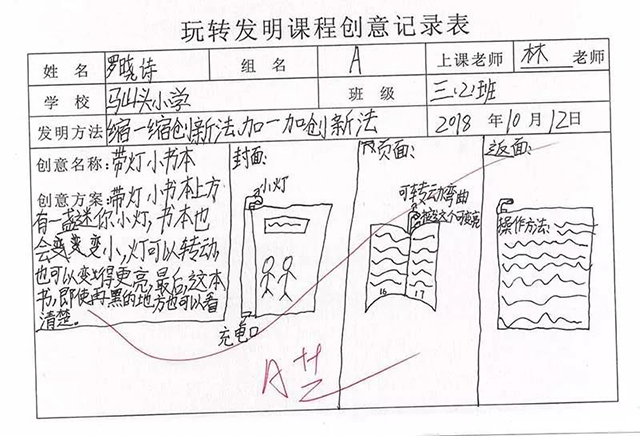 玩转发明课程创意记录表
姓名 罗晓诗 组名 A 上课老师 林 老师
学校 马山头小学 班级 三(2)班
发明方法 缩一缩创新法,加一加创新法 2018 年 10 月 12 日
创意名称:带灯小书本
创意方案:带灯小书本上方
有一盏迷你小灯,书本也
会变变变小,灯可以转动
也可以变得更亮,最后,这本
书,即使再黑的地方也可以看
清楚。
封面:
小灯
充电口
页面:
可转动弯曲
按这个可变亮
16 17
返面:
操作方法:
A++